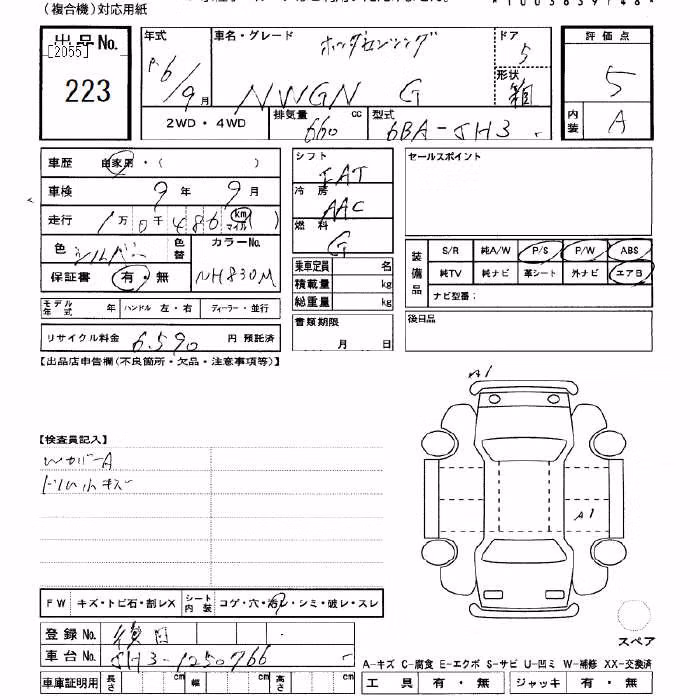 (複合機)対応用紙
出品No.
[2055]
223
年式
R6/9月
車名・グレード
ホンダセンシング
NWGN G
ドア
5
形状
箱
評価点
5
内装
A
2WD・4WD
排気量 660 cc
型式 6BA-JH3
車歴 自家用・( )
車検 9年9月
走行 1万0千486 km マイル
色 シルバー 色替
カラーNo. NH830M
保証書 有・無
シフト
FAT
冷房
AAC
燃料
G
乗車定員 名
積載量 kg
総重量 kg
セールスポイント
装備品
S/R 純A/W P/S P/W ABS
純TV 純ナビ 革シート 外ナビ エアB
ナビ型番:
モデル年式 年 ハンドル 左・右 ディーラー・並行
リサイクル料金 6,590 円 預託済
書類期限
月 日
後日品
【出品店申告欄(不良箇所・欠品・注意事項等)】
A1
【検査員記入】
WカバーA
ドア小キズ
A1
FW キズ・トビ石・割レX
シート内装 コゲ・穴・汚レ・シミ・破レ・スレ
スペア
登録No. 後日
車台No. JH3-1250766
A-キズ C-腐食 E-エクボ S-サビ U-凹ミ W-補修 XX-交換済
車庫証明用 長さ cm 幅 cm 高さ cm
工具 有・無 ジャッキ 有・無